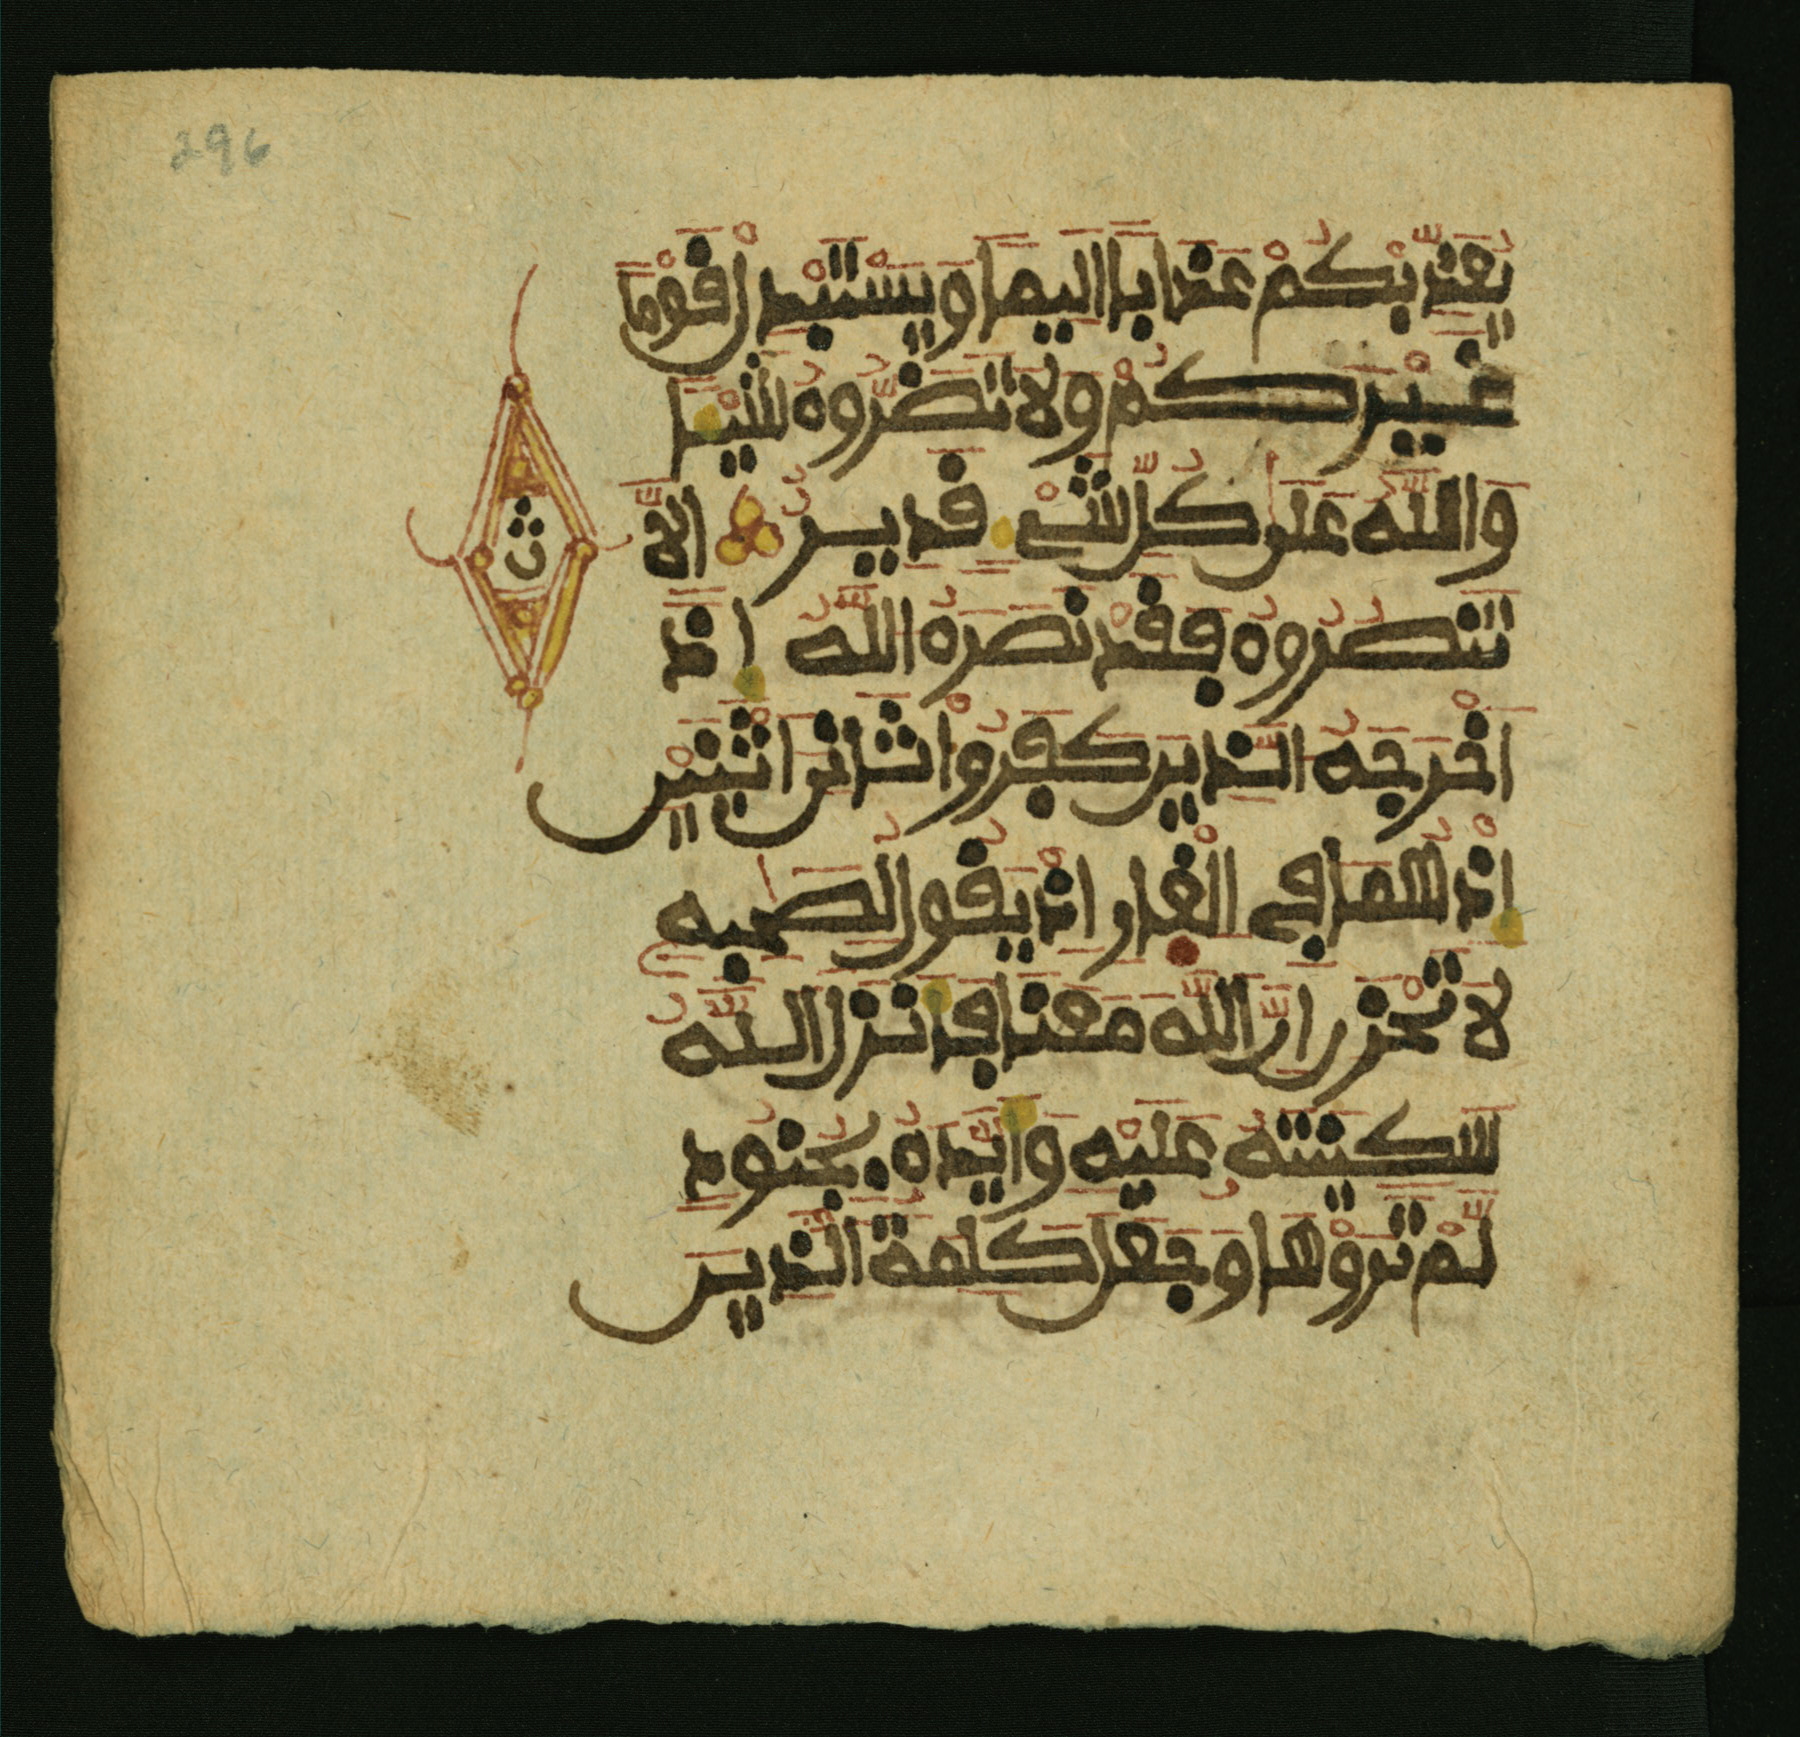 296
يُعَذِّبْكُمْ عَذَابًا اَلِيمًا وَيَسْتَبْدِلْ قَوْمًا
غَيْرَكُمْ وَلَا تَضُرُّوهُ شَيْـًٔا
وَاللَّهُ عَلَىٰ كُلِّ شَيْءٍ قَدِيرٌ اِلَّا
تَنصُرُوهُ فَقَدْ نَصَرَهُ اللَّهُ اِذَ
اَخْرَجَهُ الَّذِينَ كَفَرُوا ثَانِيَ اثْنَيْنِ
اِذْ هُمَا فِي الْغَارِ اِذْ يَقُولُ لِصَٰحِبِهِ
لَا تَحْزَنِ اِنَّ اللَّهَ مَعَنَا فَاَنزَلَ اللَّهُ
سَكِينَتَهُ عَلَيْهِ وَاَيَّدَهُ بِجُنُودٍ
لَّمْ تَرَوْهَا وَجَعَلَ كَلِمَةَ الَّذِينَ
ثن